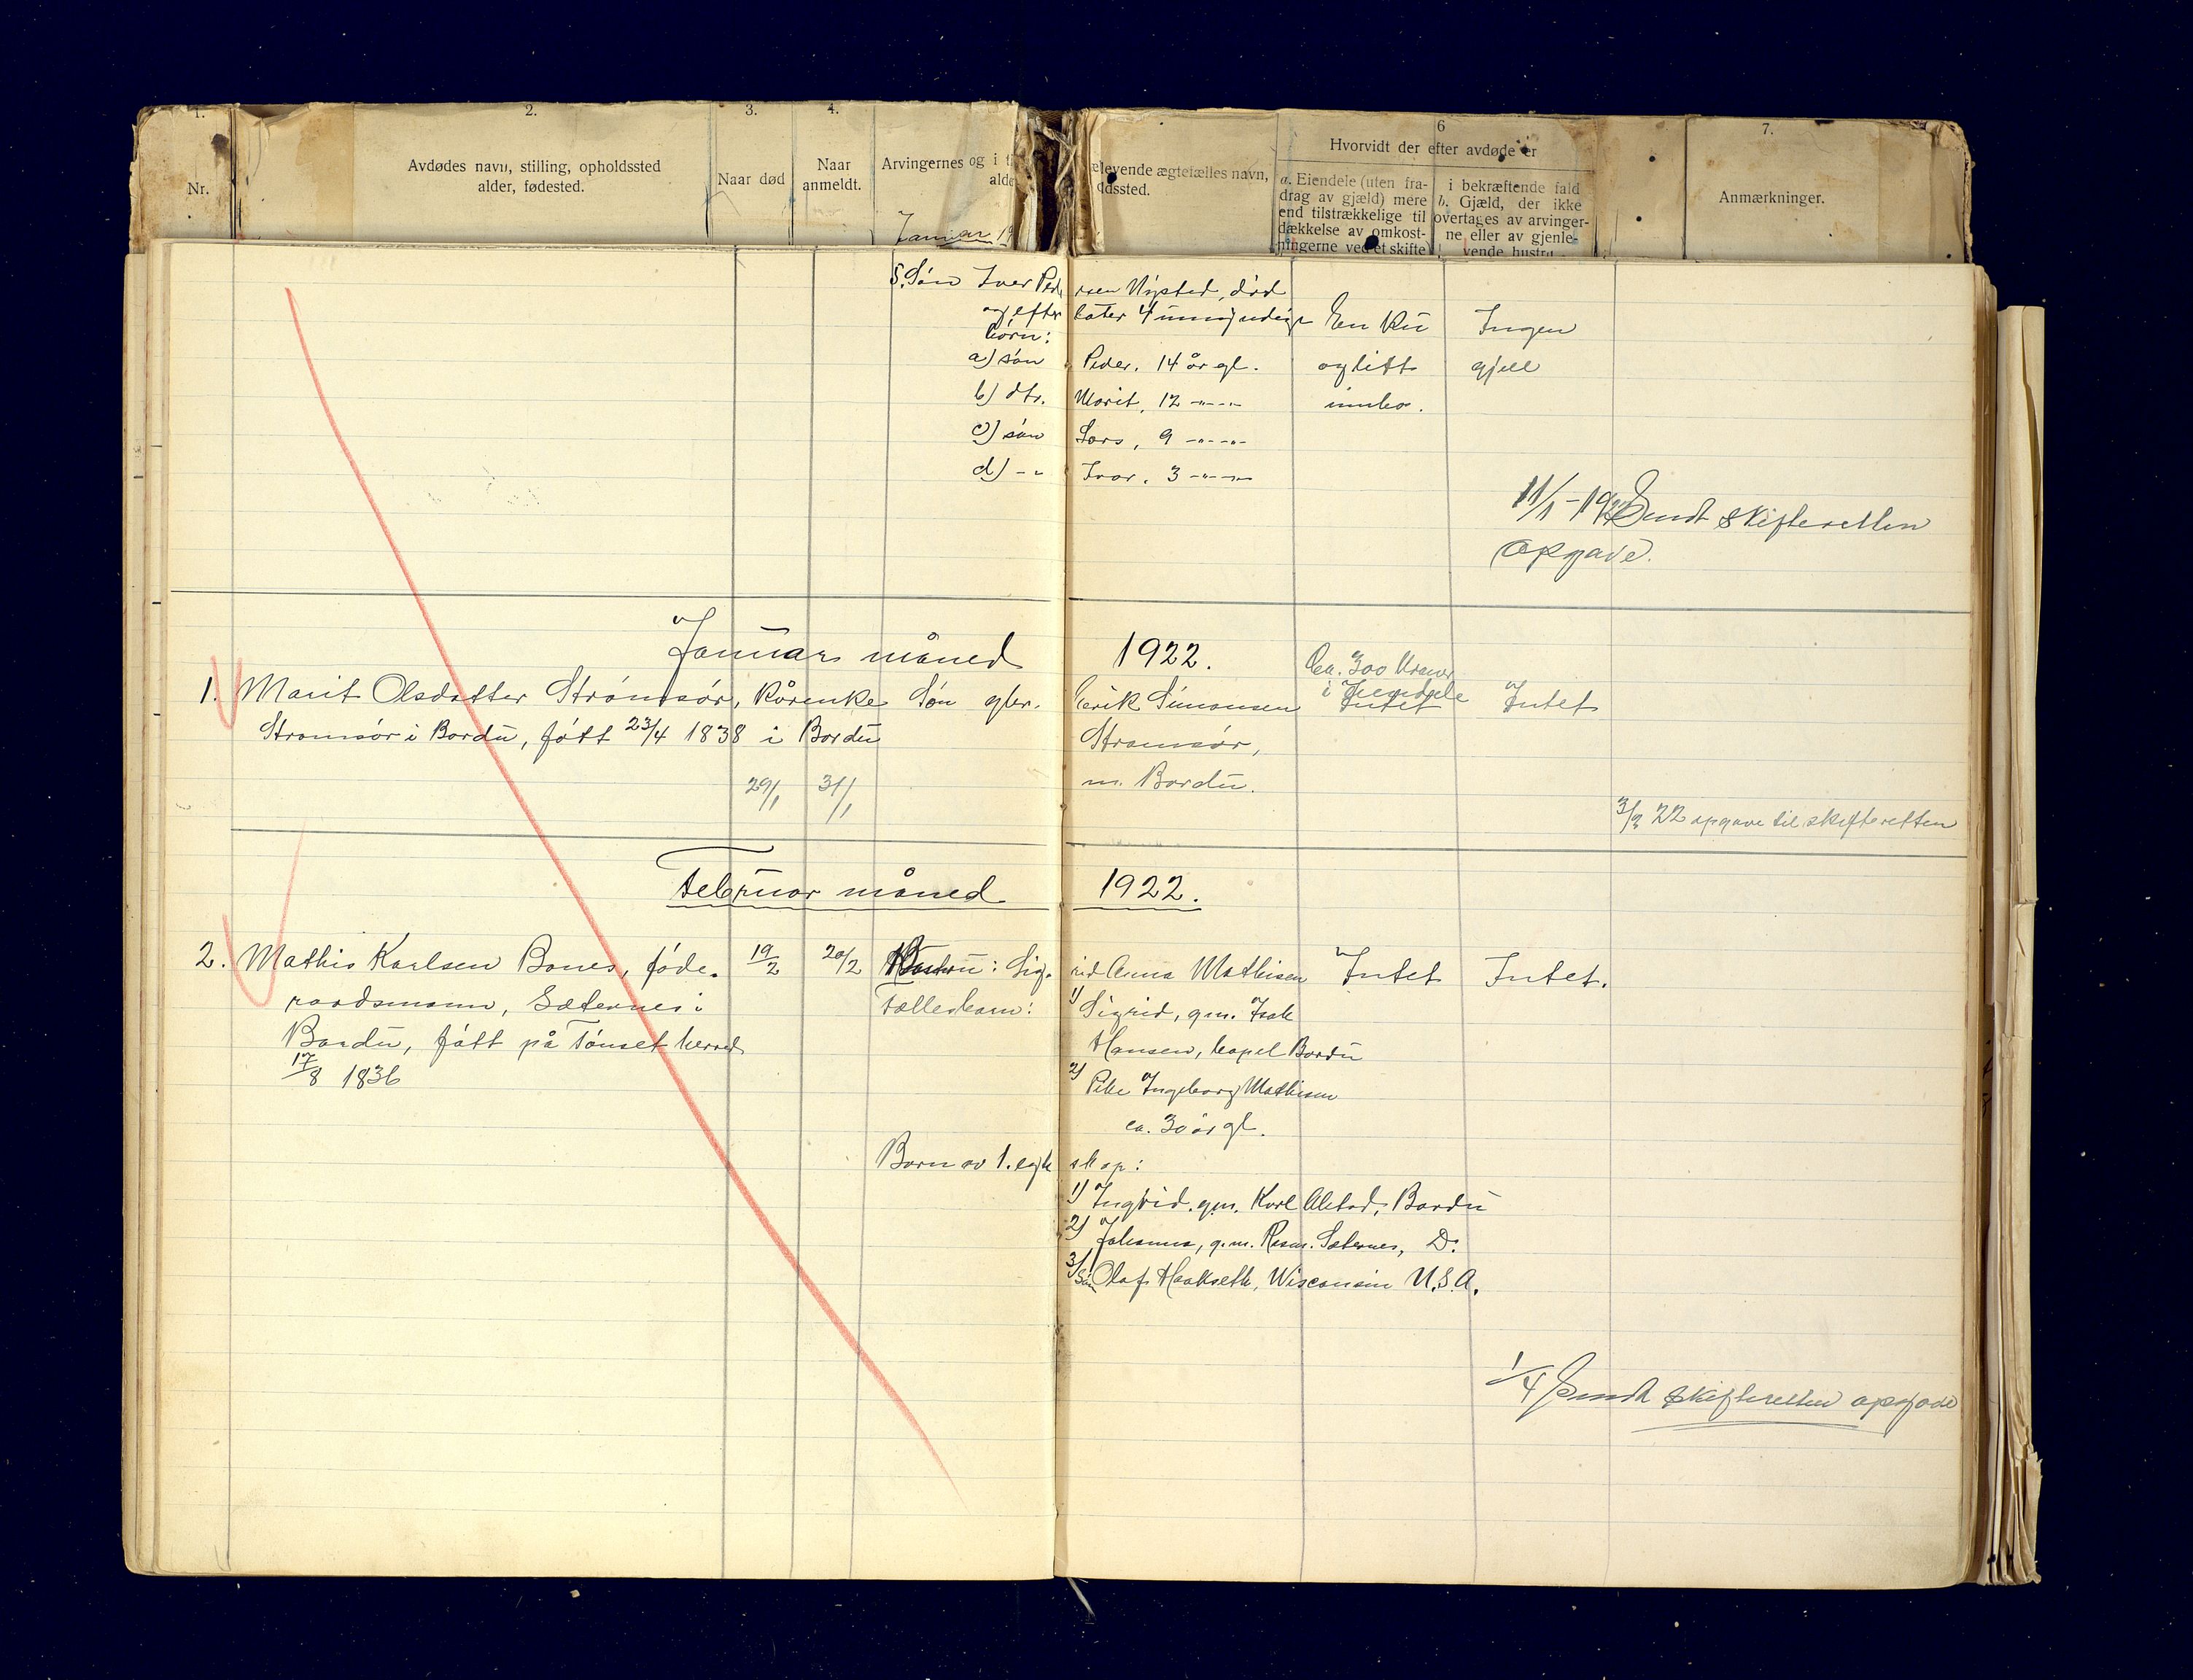 1.
2.
3.
4.
6
7.
Nr.
Avdødes navn, stilling, opholdssted
alder, fødested.
Naar død
Naar
anmeldt.
Arvingernes og i
alde
levende ægtefælles navn,
dssted.
Hvorvidt der efter avdøde er
a. Eiendele (uten fra-
drag av gjæld) mere
end tilstrækkelige til
dækkelse av omkost-
ningerne ved et skifte
i bekræftende fald
b. Gjæld, der ikke
overtages av arvinger-
ne eller av gjenle-
vende hustru
Anmærkninger.
Januar 19
5. Søn Iver Pedersen Nysted, død
og efterlater 4 umyndige
børn:
En ku Ingen
a) søn Peder, 14 år gl. og litt gjell
b) dtr. Marit, 12 -"- -"- innbo.
c) søn Lars, 9 -"- -"-
d) -"- Ivar, 3 -"- -"-
11/1 - 1922 Sendt skifteretten
opgave.
Januar måned 1922.
Ca. 300 Kroner
i Eiendele
1. Marit Olsdatter Strømsør, kårenke Søn gbr. Erik Simonsen Intet Intet
Strømsør i Bardu, født 23/4 1838 i Bardu Strømsør,
29/1 31/1 m. Bardu.
3/3 22 opgave til skifteretten
Februar måned 1922.
2. Mathis Karlsen Bones, føde- 19/2 20/2 Hustru: Sigrid Anna Mathisen Intet Intet.
raadsmann, Sæternes i Fællesbarn: 1) Sigrid, g.m. Isak
Bardu, født på Tønset herred Hansen, kapel Bardu
17/8 1836 2) Pike Ingeborg Mathisen
ca. 30 år gl.
Barn av 1. egteskap:
1) Ingrid. gm. Karl Alstad, Bardu
2) Johanna, g.m. Rasm. Sæternes, D:
3) Søn Olaf Haakseth, Wisconsin U.S.A.
1/4 Sendt skifteretten opgave